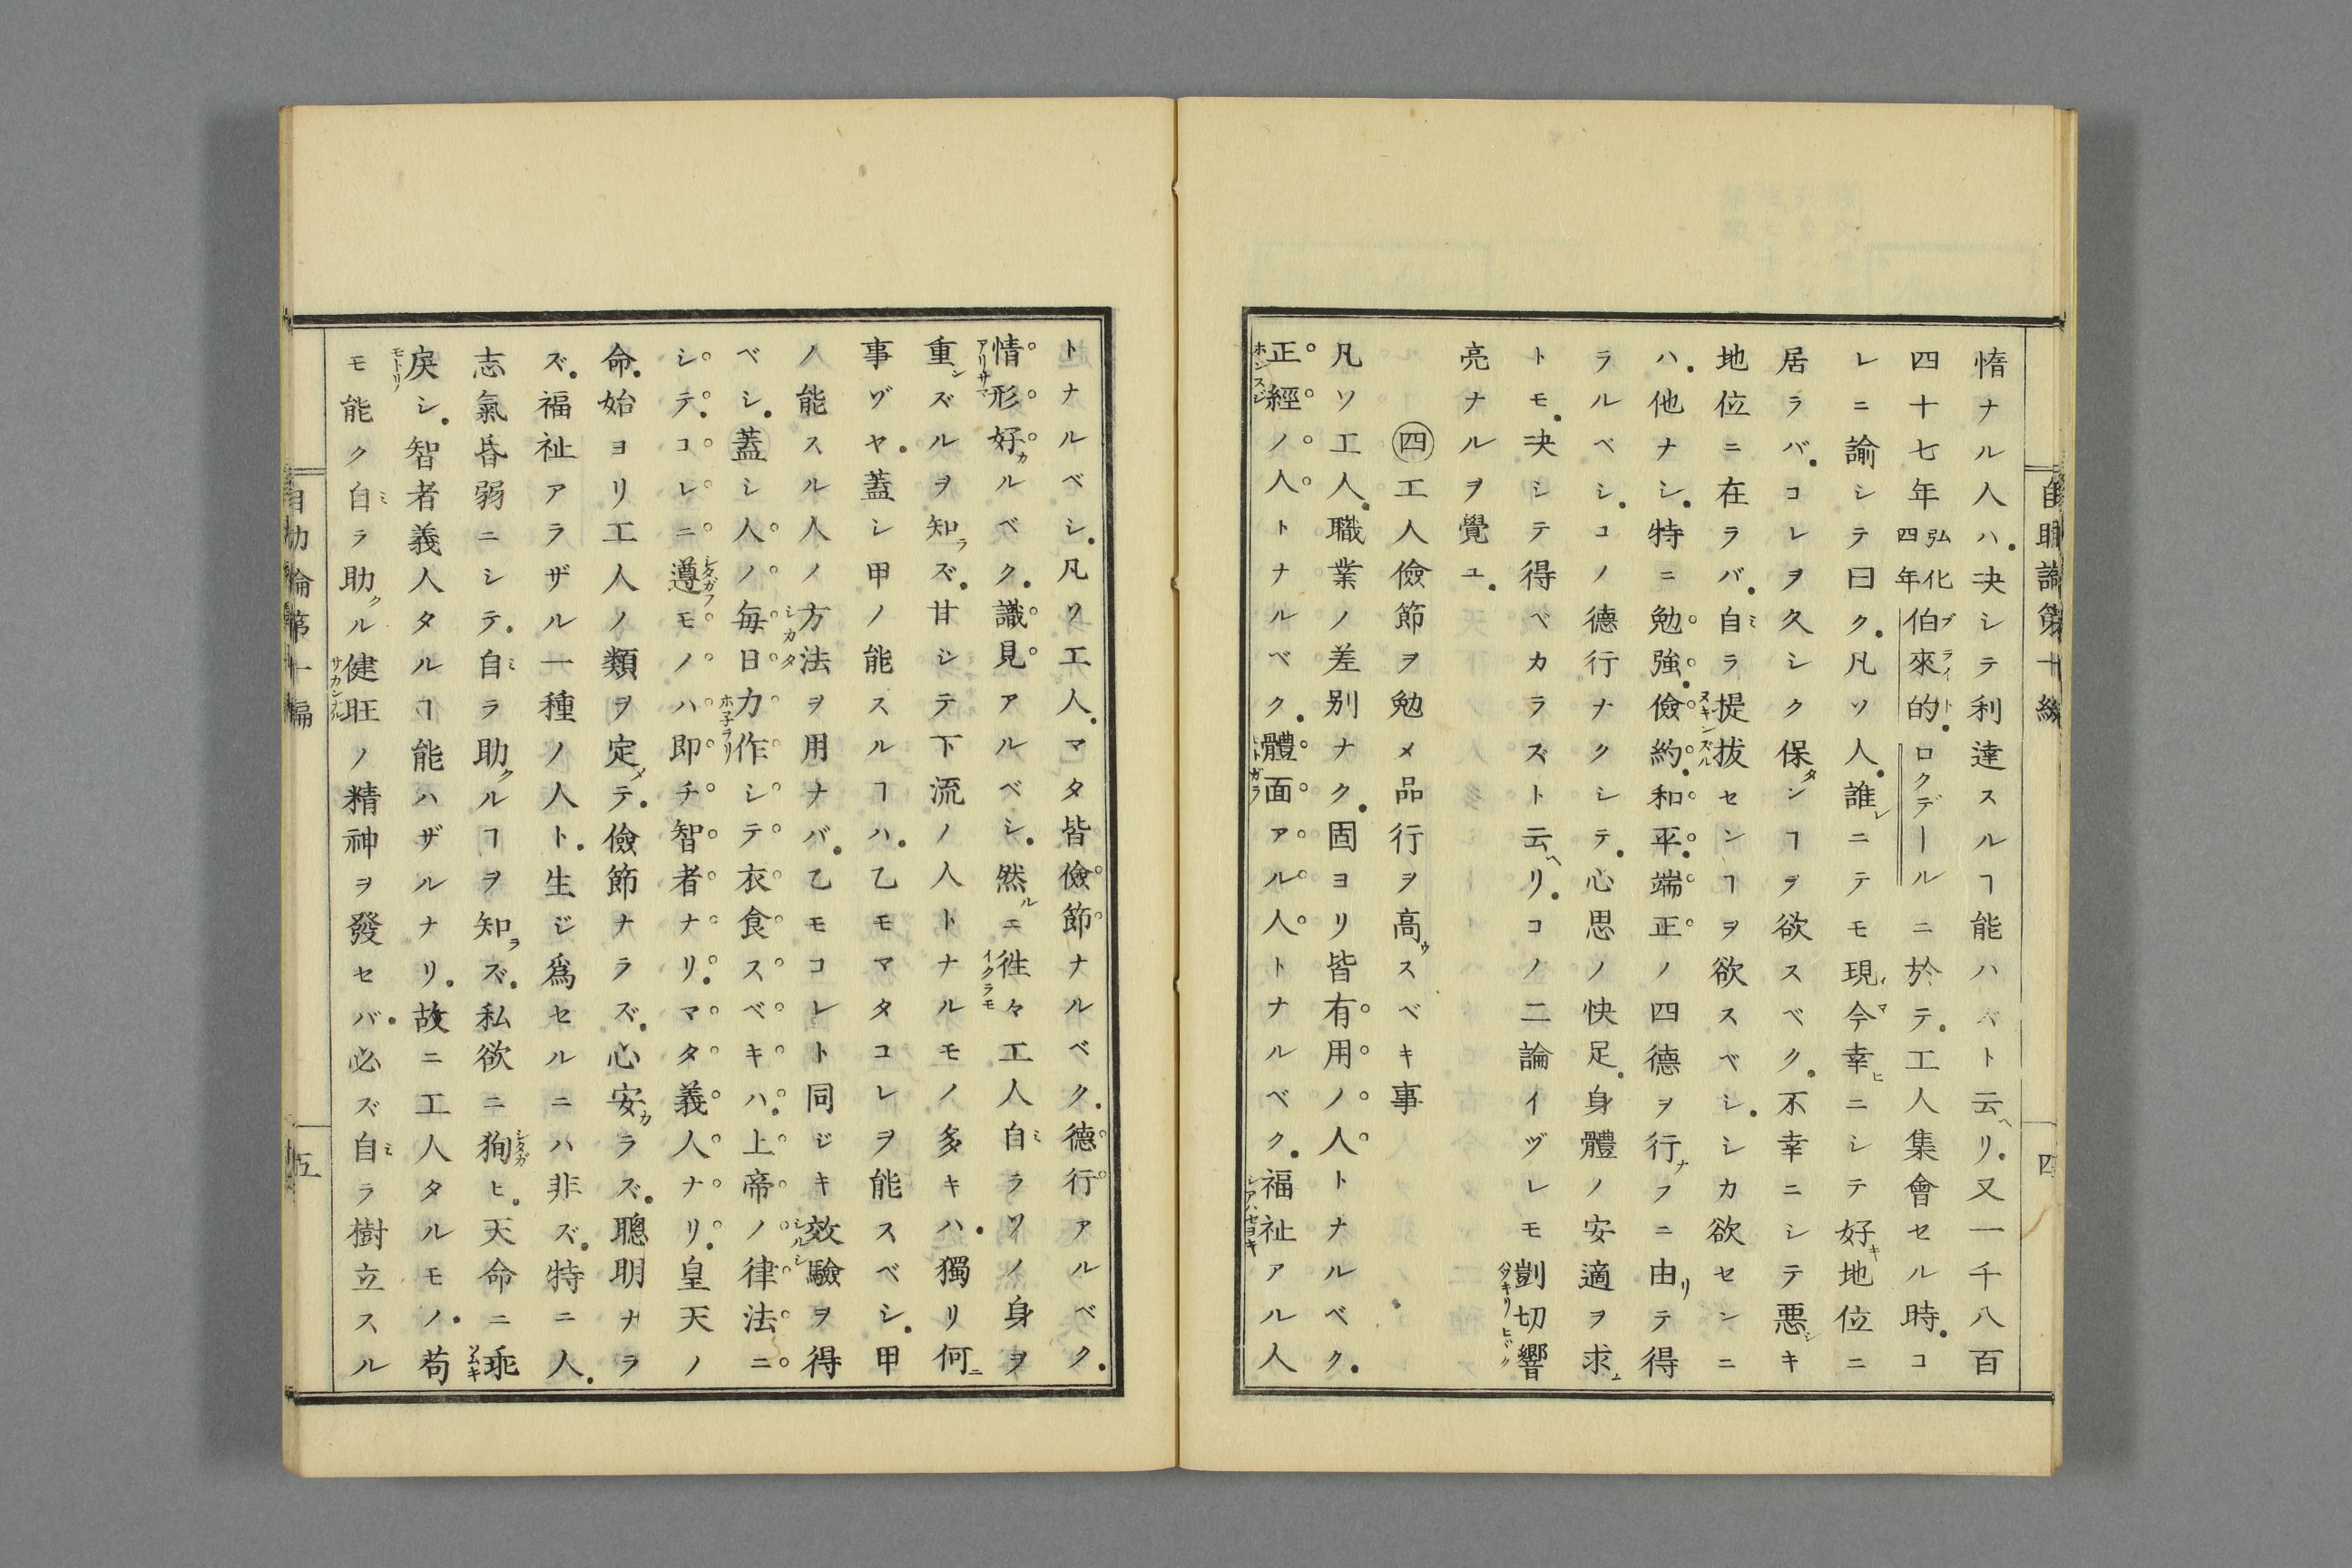 自助論第十編
四
惰ナル人ハ決シテ利達スルヿ能ハズト云ヘリ又一千八百
四十七年弘化四年伯來的ブライトロクデールニ於テ工人集會セル時コ
レニ諭シテ曰ク凡ソ人誰レニテモ現今イマ幸ヒニシテ好キ地位ニ
居ラバコレヲ久シク保タンヿヲ欲スベク不幸ニシテ悪シキ
地位ニ在ラバ自ミラ提拔ヌキンズルセンヿヲ欲スベシシカ欲センニ
ハ他ナシ特ニ勉強儉約和平端正ノ四德ヲ行ナフニ由リテ得
ラルベシコノ德行ナクシテ心思ノ快足身體ノ安適ヲ求ム
トモ決シテ得ベカラズト云ヘリコノ二論イヅレモ剴切響
亮ナルヲ覺ユ
四工人儉節ヲ勉メ品行ヲ高ウスベキ事
凡ソ工人職業ノ差別ナク固ヨリ皆有用ノ人トナルベク
正經ホンスジノ人トナルベク體面ヒトガラアル人トナルベク福祉アル人
トナルベシ凡ソ工人マタ皆儉節ナルベク德行アルベク
情形アリサマ好カルベク識見アルベシ然ルニ徃々イクラモ工人自ミラソノ身ヲ
重シズルヲ知ラズ甘シテ下流ノ人トナルモノ多キハ獨リ何ニ
事ゾヤ蓋シ甲ノ能スルヿハ乙モマタコレヲ能スベシ甲
ノ能スル人ノ方法シカタヲ用ナバ乙モコレト同ジキ效驗シルシヲ得
ベシ蓋シ人ノ毎日力作ホネヲリシテ衣食スベキハ上帝ノ律法ニ
シテコレニ遵シタガフモノハ即チ智者ナリマタ義人ナリ皇天ノ
命始ヨリ工人ノ類ヲ定メテ儉節ナラズ心安カラズ聰明ナラ
ズ福祉アラザル一種ノ人ト生ジ爲セルニハ非ズ特ニ人
志氣昏弱ニシテ自ミラ助クルヿヲ知ラズ私欲ニ狥シタガヒ天命ニ乖ソムキ
戾モトリシ智者義人タルヿ能ハザルナリ故ニ工人タルモノ苟
モ能ク自ミラ助クル健旺サカンナルノ精神ヲ發セバ必ズ自ミラ樹立スル
自助論第十編
五